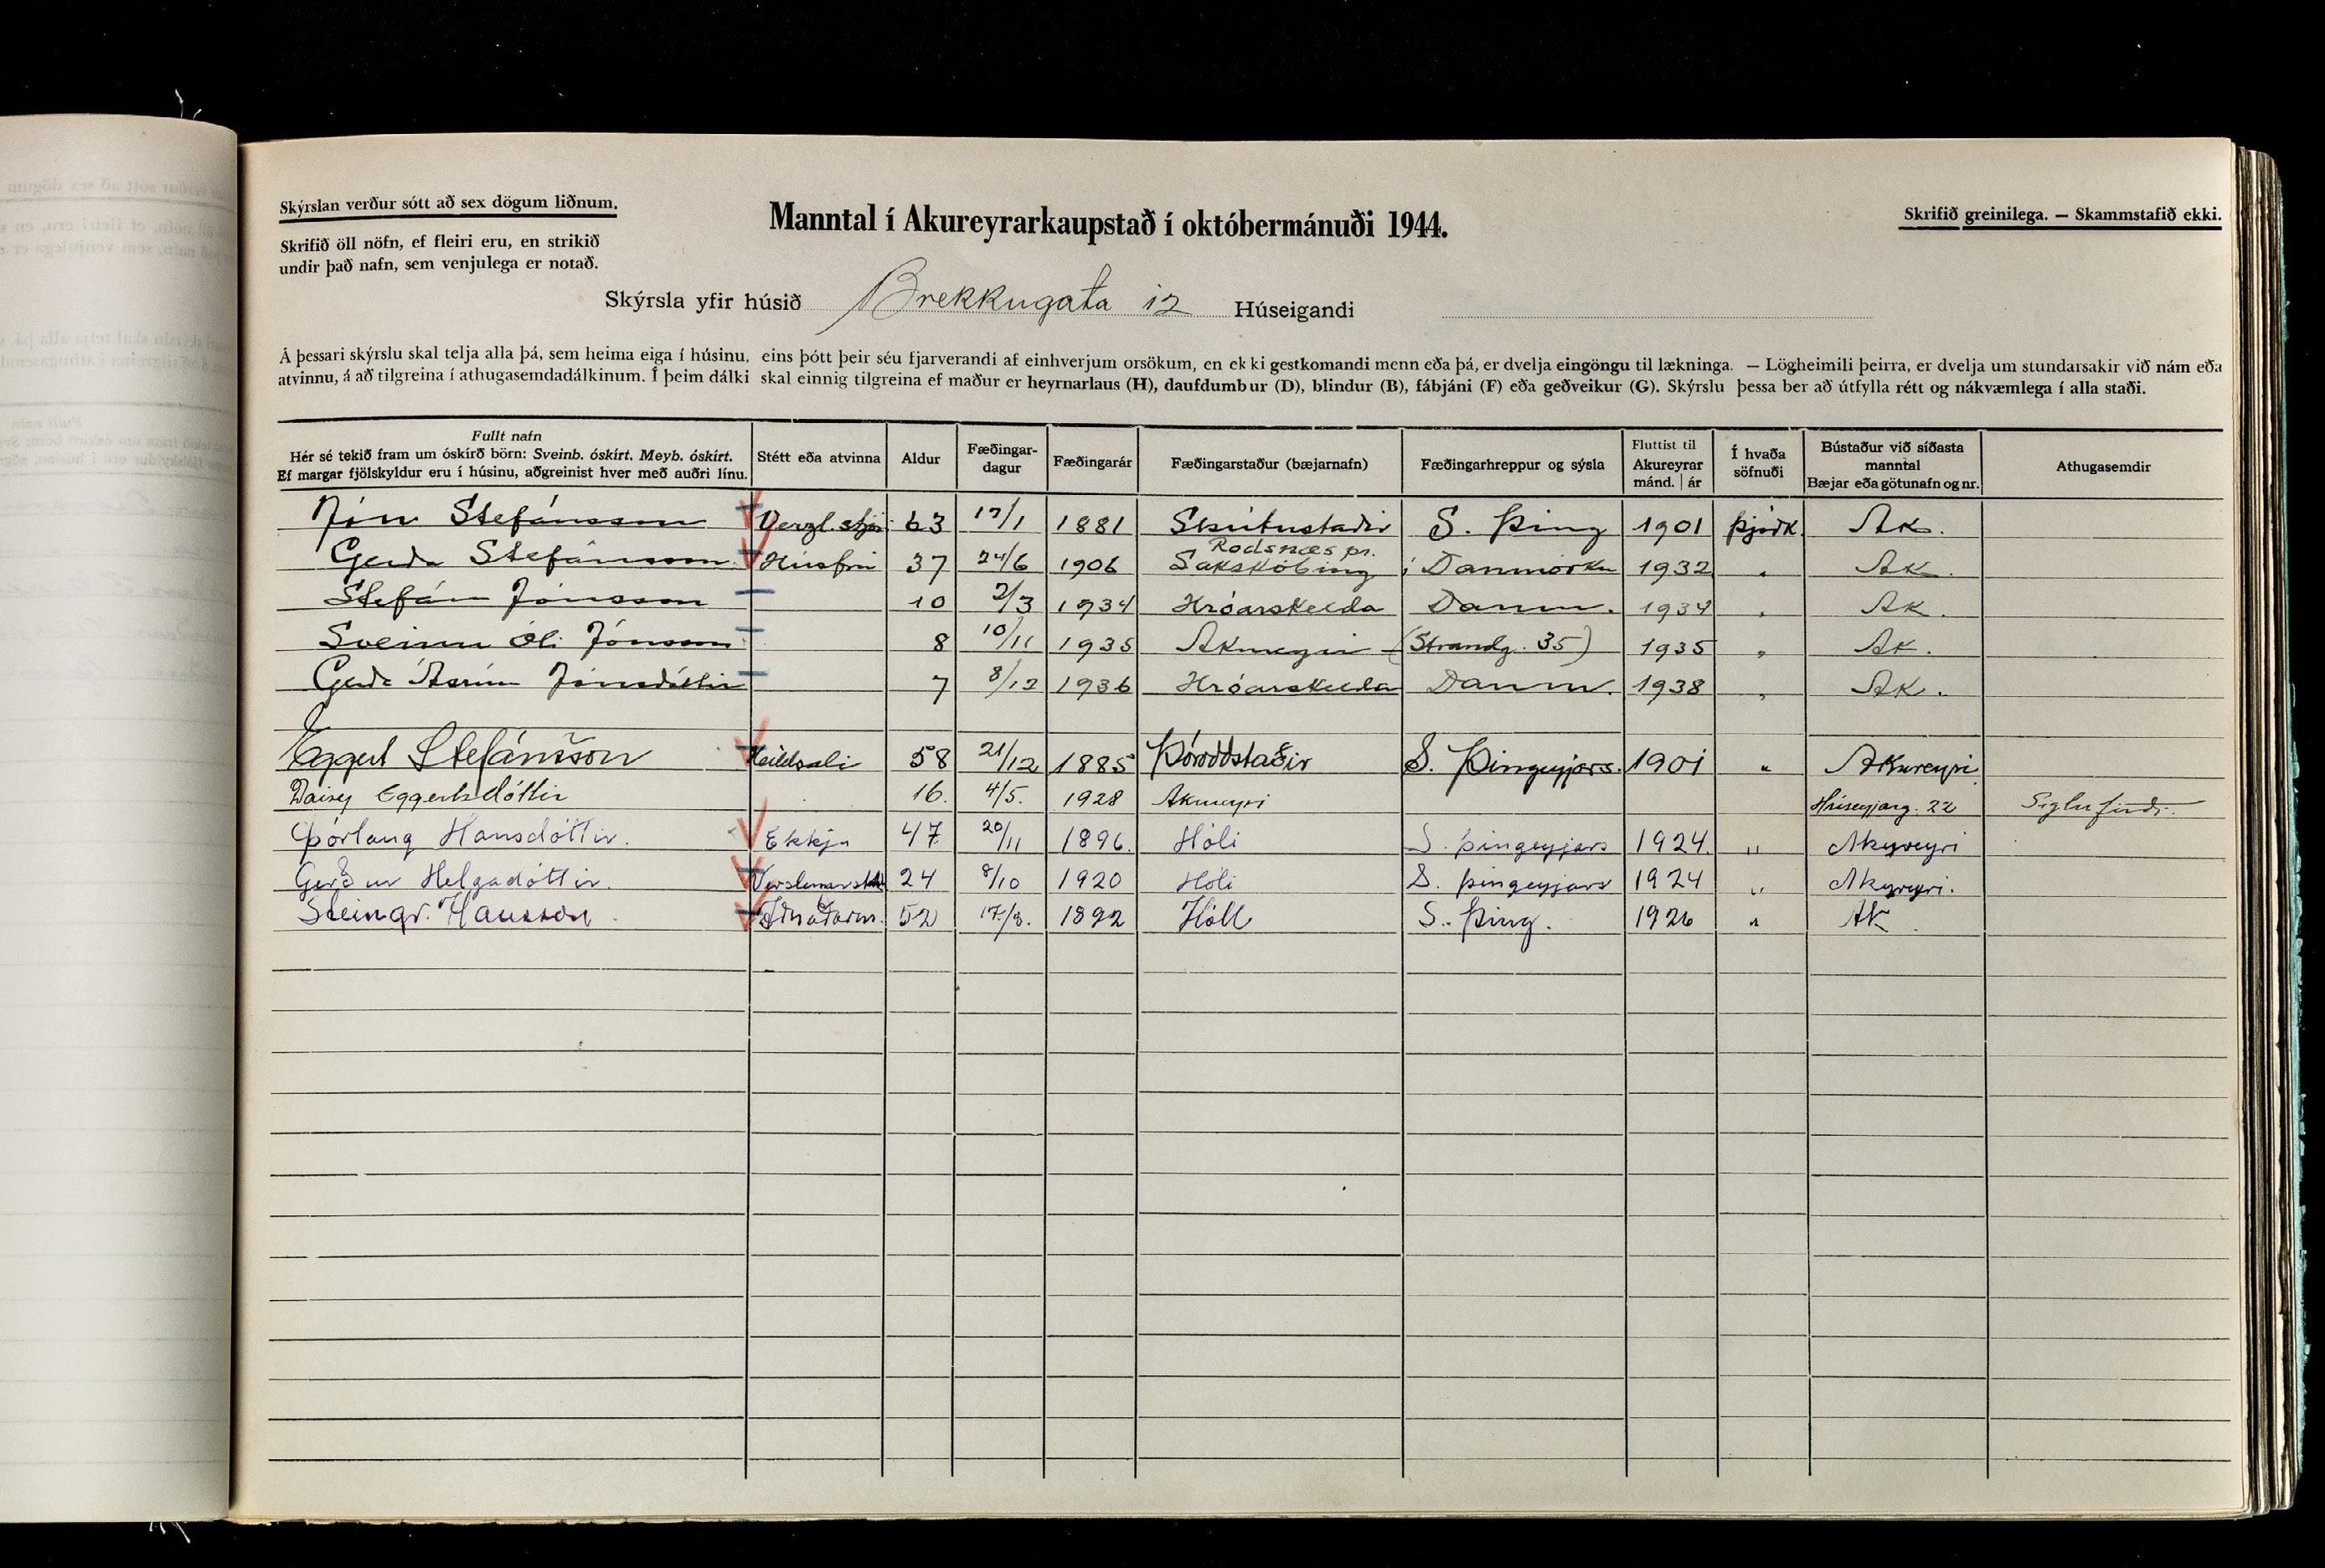 Skýrslan verður sótt að sex dögum liðnum.
Skrifið öll nöfn, ef fleiri eru, en strikið
undir það nafn, sem venjulega er notað.
Manntal í Akureyrarkaupstað í októbermánuði 1944.
Skrifið greinilega. — Skammstafið ekki.
Skýrsla yfir húsið Brekkugata 12 Húseigandi
Á þessari skýrslu skal telja alla þá, sem heima eiga í húsinu, eins þótt þeir séu fjarverandi af einhverjum orsökum, en ekki gestkomandi menn eða þá, er dvelja eingöngu til lækninga. — Lögheimili þeirra, er dvelja um stundarsakir við nám eða
atvinnu, á að tilgreina í athugasemdadálkinum. Í þeim dálki skal einnig tilgreina ef maður er heyrnarlaus (H), daufdumbur (D), blindur (B), fábjáni (F) eða geðveikur (G). Skýrslu þessa ber að útfylla rétt og nákvæmlega í alla staði.
Fullt nafn
Hér sé tekið fram um óskírð börn: Sveinb. óskírt. Meyb. óskírt.
Ef margar fjölskyldur eru í húsinu, aðgreinist hver með auðri línu.
Stétt eða atvinna
Aldur
Fæðingar-
dagur
Fæðingarár
Fæðingarstaður (bæjarnafn)
Fæðingarhreppur og sýsla
Fluttist til
Akureyrar
mánd. | ár
Í hvaða
söfnuði
Bústaður við síðasta
manntal
Bæjar eða götunafn og nr.
Athugasemdir
Jón Stefánsson Verzl.stjór 63 1881 Skútustaðir S. Þing 1901 Þjóðk Ak.
Rodsnæs pr.
Gerda Stefánsson Húsfrú 37 24/6 1906 Sakskôbing í Danmörku 1932 " Ak.
Stefán Jónsson 10 2/3 1934 Hróarskelda Danm. 1934 " Ak.
Sveinn Óli Jónsson 8 10/11 1935 Akureyri (Strandg. 35) 1935 " Ak.
Gerda Jónsdóttir 7 8/12 1936 Hróarskelda Danm. 1938 " Ak.
Eggert Stefánsson Heildsali 58 21/12 1885 Þóroddstaðir S. Þingeyjars. 1901 " Akureyri
Daisy Eggertsdóttir 16. 4/5. 1928 Akureyri Hríseyjarg. 22
Þórlaug Hansdóttir. Ekkja 47 20/11 1896. Hóli S. Þingeyjars 1924. " Akureyri
Gerður Helgadóttir. 24 8/10 1920 Hóli S. Þingeyjars 1924 " Akureyri.
Steingr. Hansson 52 17/8. 1892 Hóll S. Þing. 1926 " Ak